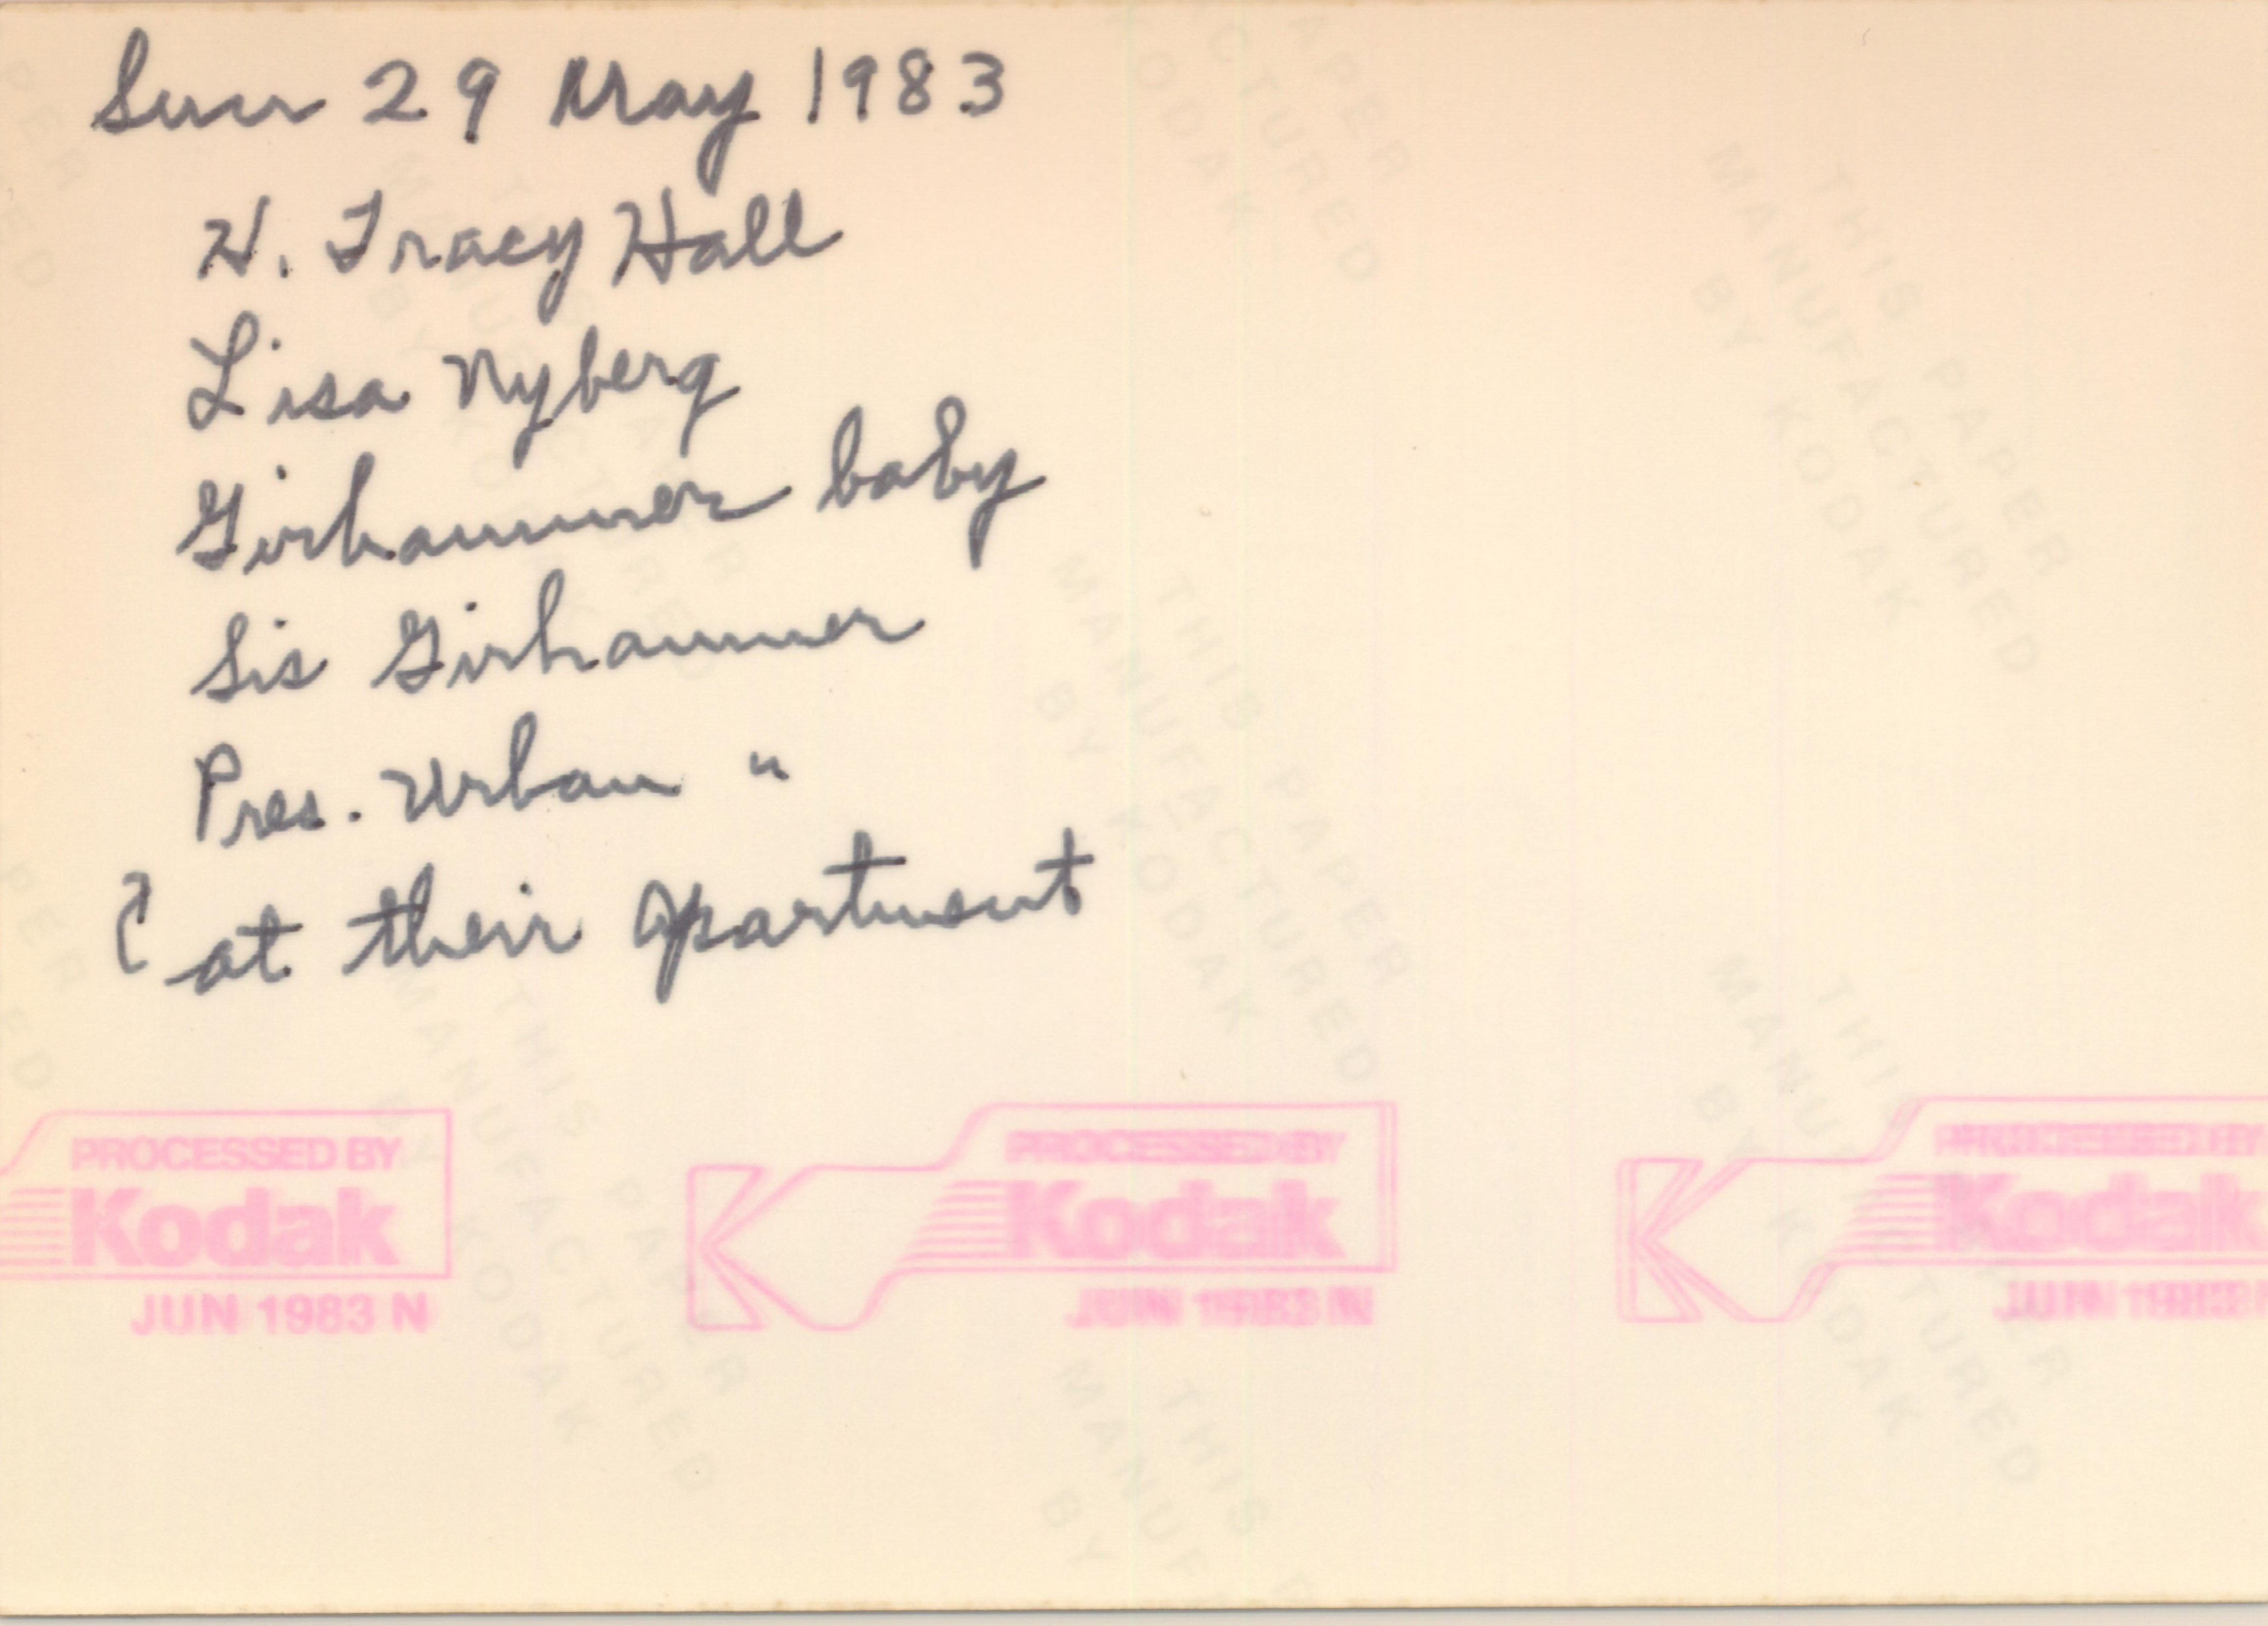 Sun 29 May 1983
H. Tracy Hall
Lisa Nyberg
Girhammer baby
Sis Girhammer
Pres. Urban "
at their apartment
PROCESSED BY
Kodak
JUN 1983 N
PROCESSED BY
Kodak
JUN 1983 N
PROCESSED BY
Kodak
JUN 1983
THIS PAPER
MANUFACTURED
BY KODAK
THIS PAPER
MANUFACTURED
BY KODAK
THIS PAPER
MANUFACTURED
BY KODAK